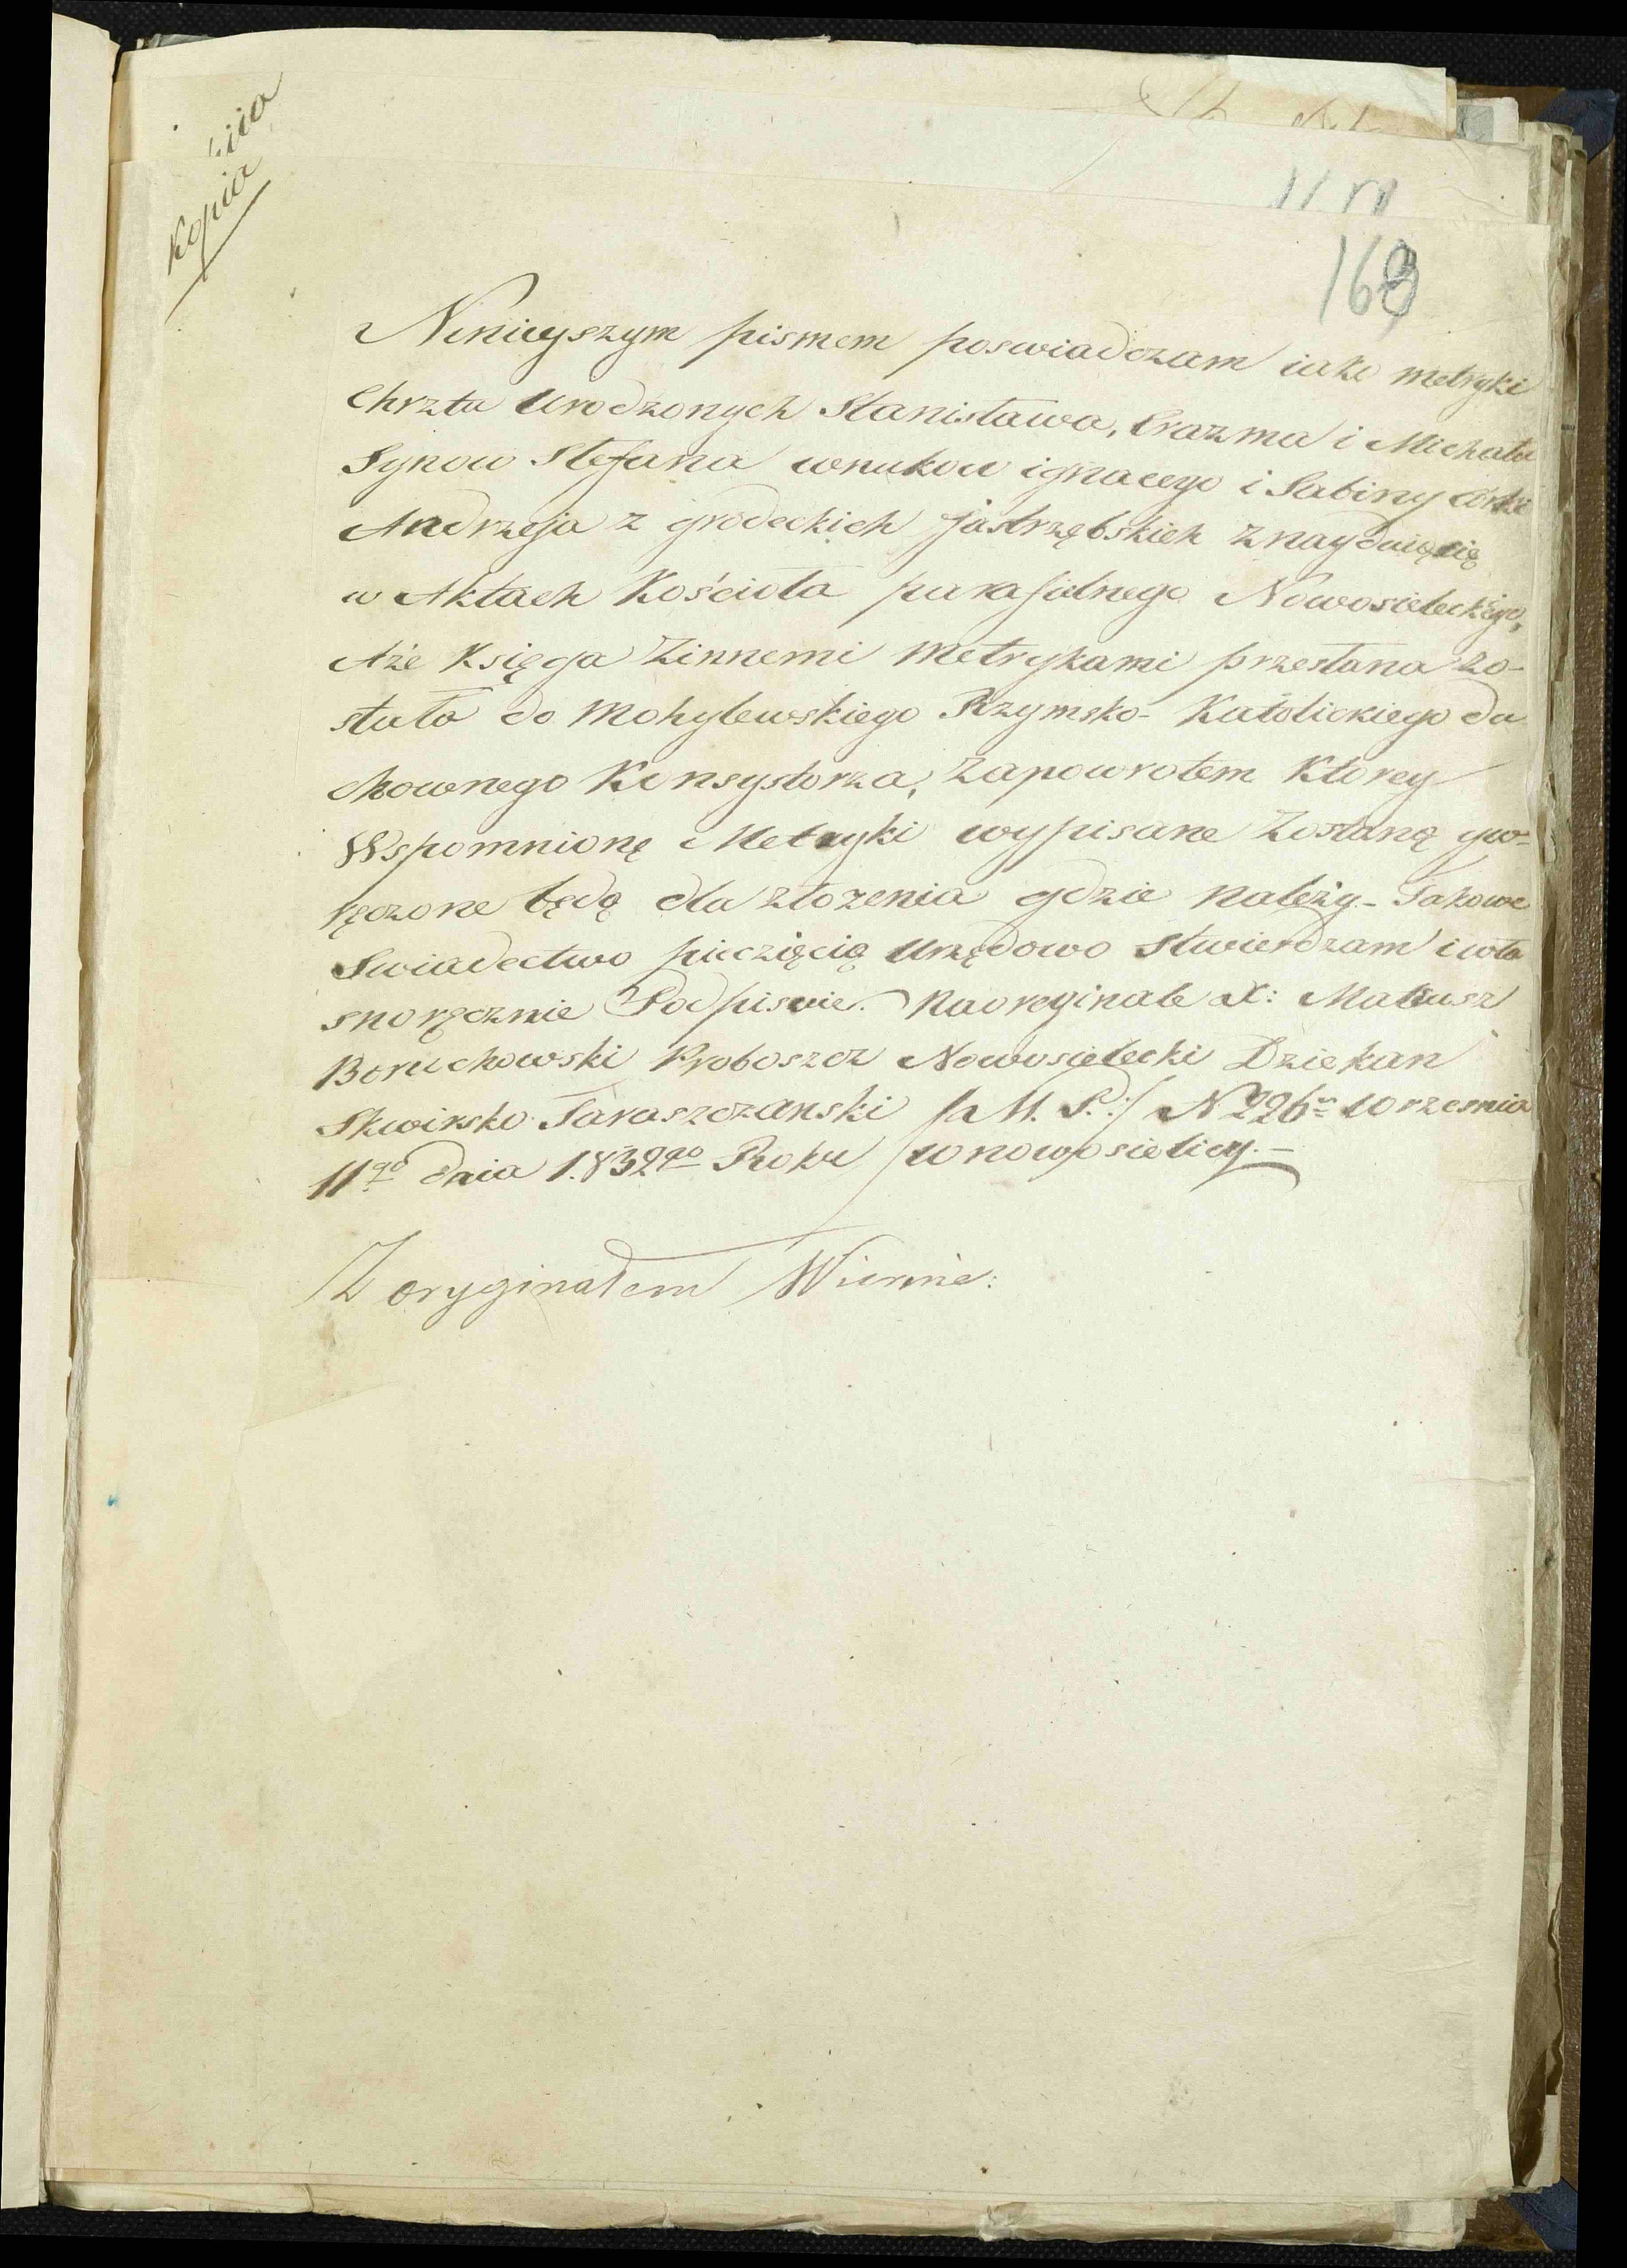 Kopia
168
Ninieyszym pismem poswiadczam iako metryki
Chrztu Urodzonych Stanisława, Erazma i Michała
Synow Stefana wnukow ignacego i Sabiny córki
Andrzeja z grodeckich jastrzębskich znayduią się
w Aktach Kościoła parafialnego Nowosieleckiego,
Aże Księga Zinnemi metrykami przesłana zo-
stała do Mohylewskiego Rzymsko-Katolickiego du
chownego Konsystorza, Zapowrotem Ktorey
Wspomnionę Metryki wypisane Zostaną y w-
ręczone będą dla złożenia gdzie należy - Takowe
Swiadectwo pieczięcią Urzędowo Stwierdzam i wła
snoręcznie Podpisuie. Naoreginale X: Mateusz
Boruchowski Proboszcz Nowosielecki Dziekan
Skwirsko Taraszczanski /: M. P. :/ N 226 wrzesnia
11go dnia 1832go Roku w nowosielicy. -
Z oryginałem Wiernie: